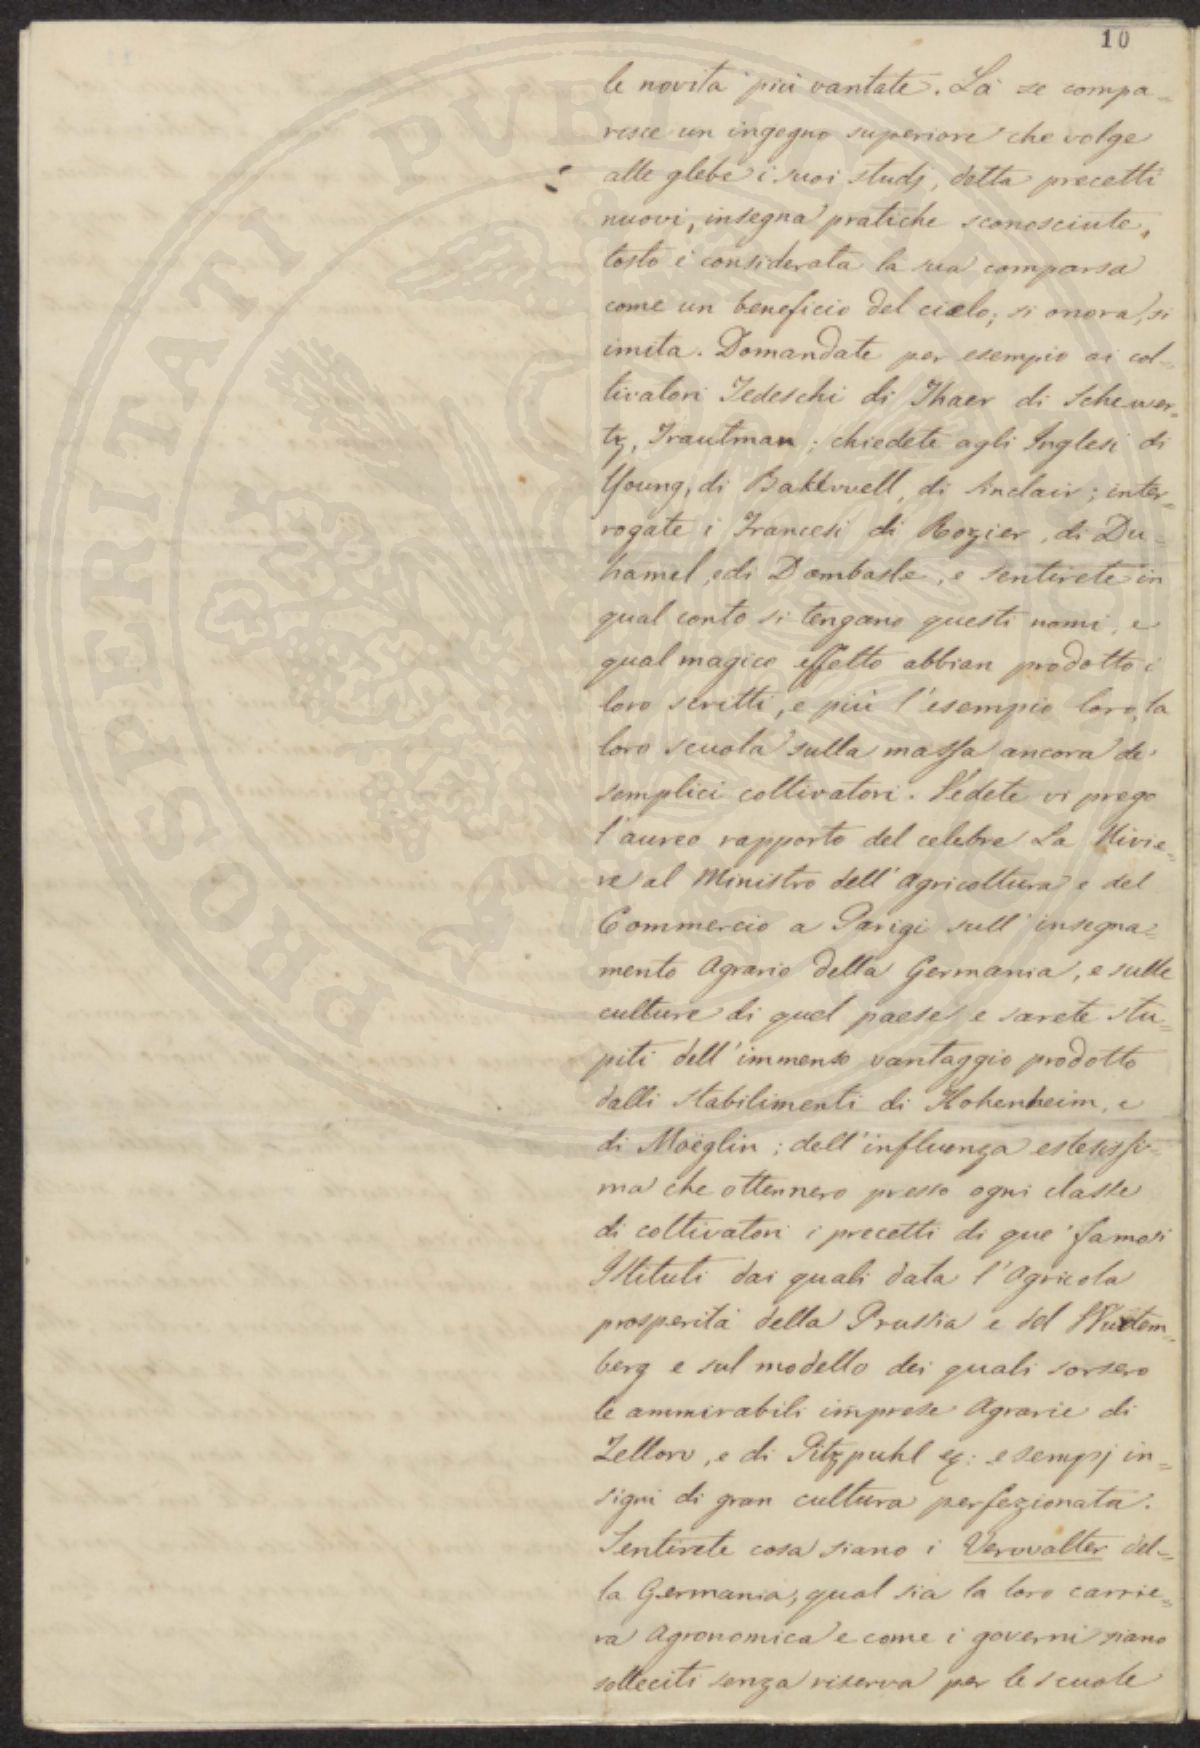 10
le novita più vantate. Là se compa=
risce un ingegno superiore che volge
alle glebe i suoi studj, detta precetti
nuovi, insegna pratiche sconosciute,
tosto è considerata la sua comparsa
come un beneficio del cielo; si onora, si
imita. Domandate per esempio ai col=
tivatori Tedeschi di Thaer di Schewer=
tz, Trautman; chiedete agli Inglesi di
Young, di Bakewell, di Sinclair; inter=
rogate i Francesi di Rozier, di Du=
hamel, e di Dombasle, e sentirete in
qual conto si tengano questi nomi, e
qual magico effetto abbian prodotto i
loro scritti, e più l'esempio loro, la
loro scuola sulla massa ancora de'
semplici coltivatori. Vedete vi prego
l'aureo rapporto del celebre La Rivie=
re al Ministro dell'Agricoltura e del
Commercio a Parigi sull'insegna=
mento Agrario della Germania, e sulle
culture di quel paese e sarete stu=
piti dell'immenso vantaggio prodotto
dalli stabilimenti di Hohenheim, e
di Moëglin; dell'influenza estesissi=
ma che ottennero presso ogni classe
di coltivatori i precetti di que' famosi
Istituti dai quali data l'Agricola
prosperità della Prussia e del Wurtem=
berg e sul modello dei quali sorsero
le ammirabili imprese Agrarie di
Zellow, e di Pitzpuhl ec: esempj in=
signi di gran cultura perfezionata.
Sentirete cosa siano i Verwalter del=
la Germania, qual sia la loro carrie=
ra Agronomica e come i governi siano
solleciti senza riserva per le scuole
PROSPERITATI PUBLICAE